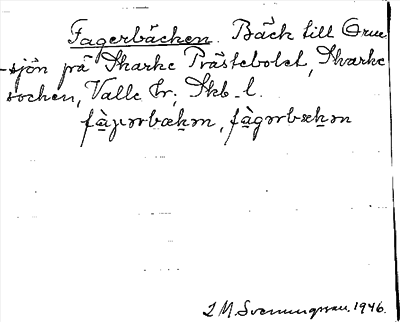 Fagerbäcken. Bäck till Orre
-sjön på Skarke Prästebolet, Skarke
socken, Valle hr; Skb. l.
fàgərbækən, fàgərbækən
2 M. Svenungsson. 1946.